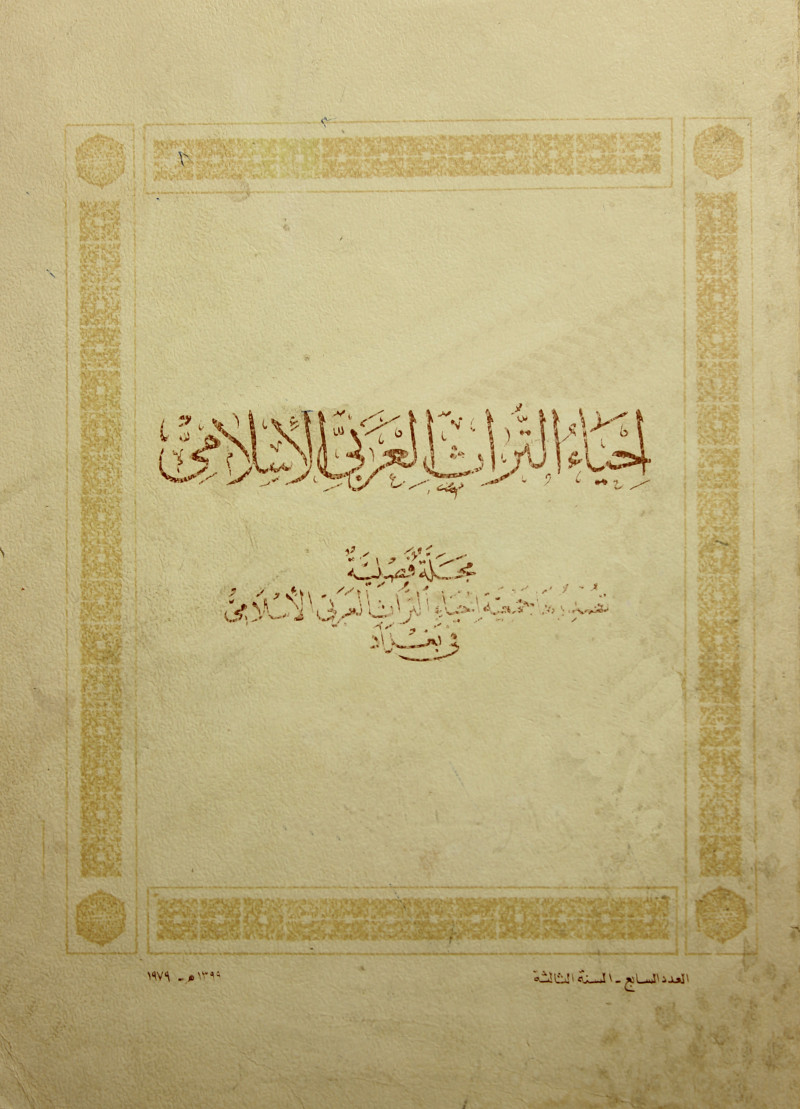 إِحْيَاءُ التُّرَاثِ العَرَبِيِّ الأِسْلَامِيِّ
مَجَلَّةٌ فَصْلِيَّةٌ
تُصْدِرُهَا جَمْعِيَّةُ إِحْيَاءِ التُّرَاثِ العَرَبِيِّ الأِسْلَامِيِّ
فِي بَغْدَادَ
العدد السابع - السنة الثالثة
١٣٩٩ هـ - ١٩٧٩